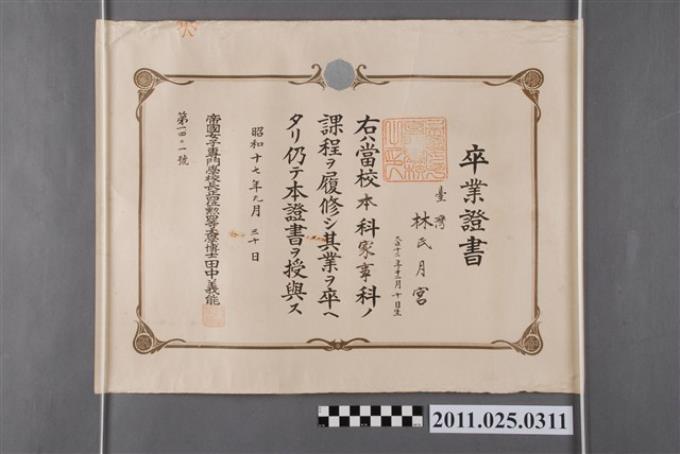 卒業證書
臺灣
林氏月宮
大正十二年十二月十日生
右ハ當校本科家事科ノ
課程ヲ履修シ其業ヲ卒ヘ
タリ仍テ本證書ヲ授與ス
昭和十七年九月三十日
帝國女子專門學校長正四位勲四等文學博士田中義能
第一四〇一號
2011.025.0311